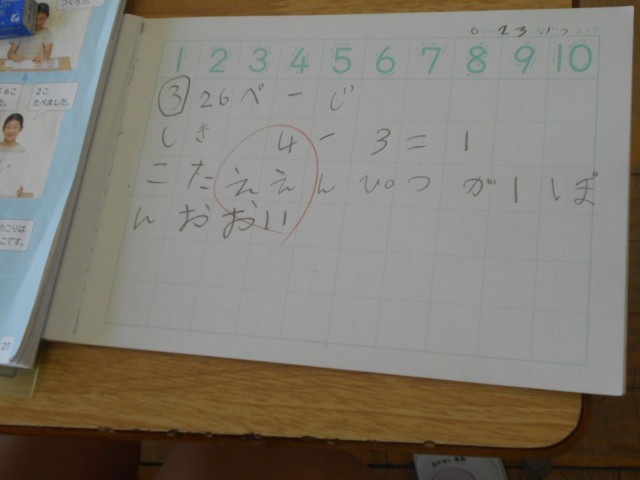 つくろう。
2こ
たべました。
のこりは
こです。
27
6 23
1 2 3 4 5 6 7 8 9 10
③ 26ページ
しき 4-3=1
こたええんぴつが1ぽ
んおおい